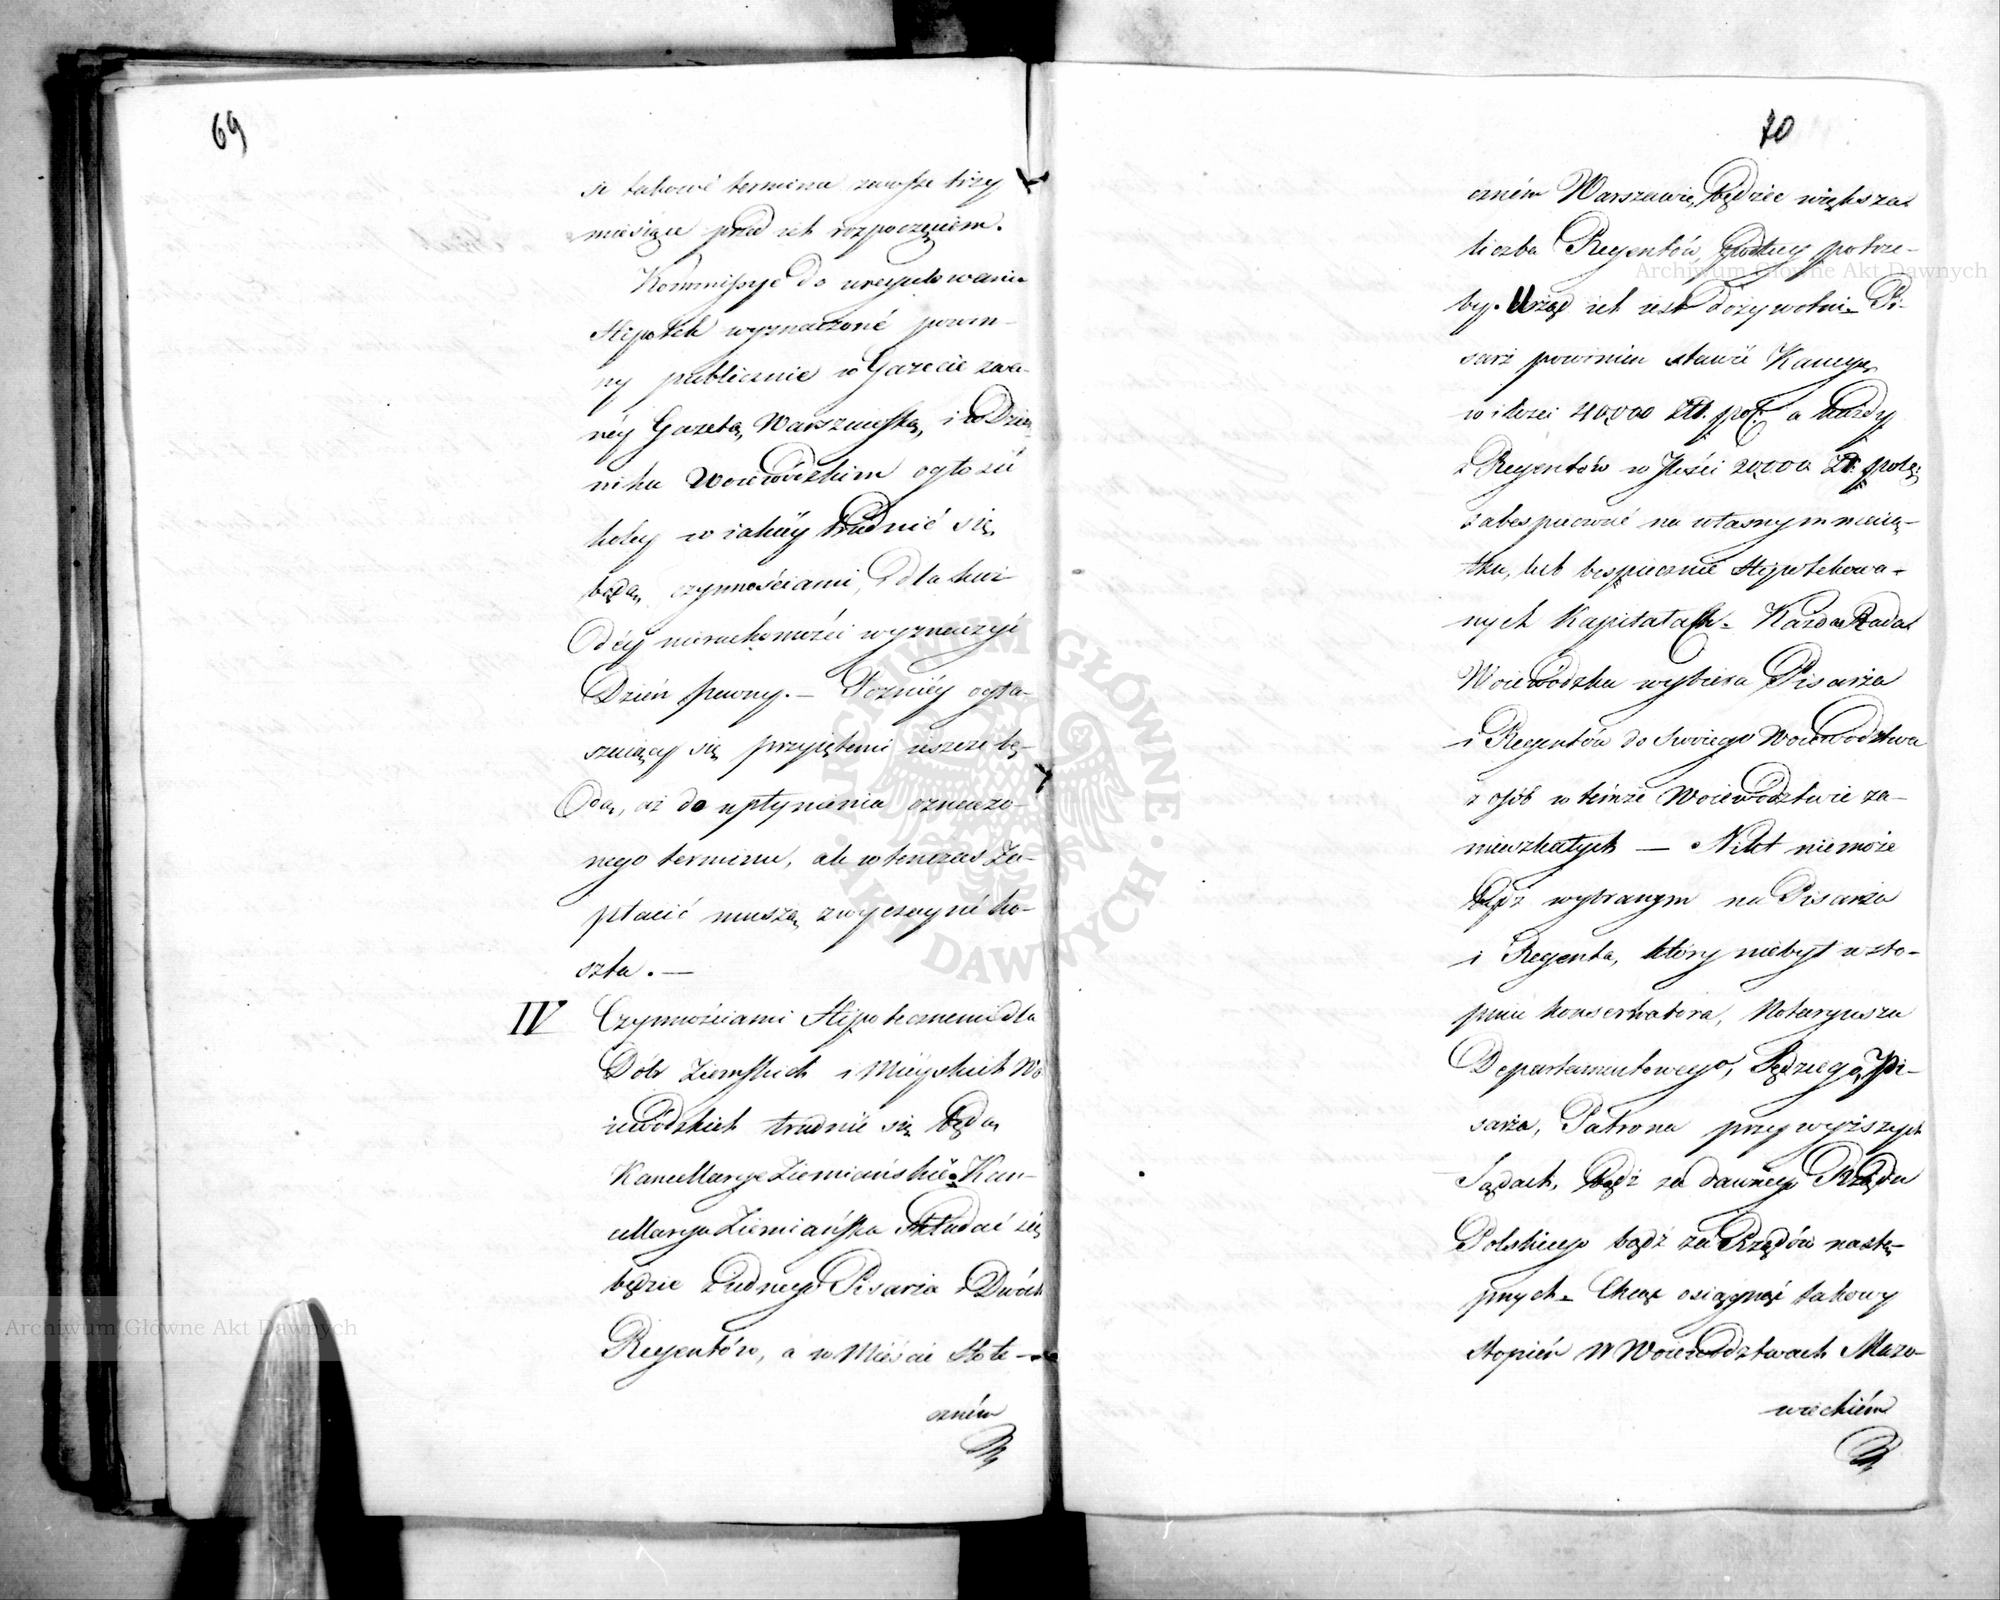 69
si takowé termina zawsze trzy
miesiące przed ich rozpoczęciem.
Kommissye do uregulowania
Hipotek wyznaczoné powin-
ny publicznie w Gazecie zwa-
néy Gazetą Warszawską, i w Dzien-
niku Woiewódzkim ogłosić
kiedy w iakiéy trudnić się
będą czynnościami, i dla każ-
déy nieruchomości wyznaczyć
Dzień pewny. — Pozniéy ogła-
szaiący się przyiętemi ieszcze bę-
dą, aż do upłynienia oznaczo-
nego terminu, ale wtenczas Za-
płacić muszą zwyczayné ko-
szta. —
IV Czynnościami Hipotecznemi dla
Dóbr Ziemskich i Mieyskich Wo
iewódzkich trudnić się będą
Kancellarye Ziemiańskié. Kan-
cellarya Ziemiańska składać się
będzie z iednego Pisarza i Dwóch
Regentów, a w Mieście Stołe-
czném
70
czném Warszawie, będzie większa
liczba Regentów, podług potrze-
by. Urząd ich iest dożywotni. Pi-
sarz powinien stawić Kaucyą
w ilości 40,000 Zł. pol. a każdy
z Regentów w Ilości 20,000 Zł. pols:
zabespieczać na własnym maią-
tku, lub bespiecznie Hypotekowa-
nych Kapitałach. Każda Rada
Woiewódzka wybiera Pisarza
i Regentów do Swoiego Woiewodztwa
z osób w témże Woiewództwie za-
mieszkałych — Nikt nie może
bydź wybranym na Pisarza
i Regenta, który niebył w sto-
pniu Konserwatora, Notaryusza
Departamentowego, Sędziego, Pi-
sarza, Patrona przy wyższych
Sądach, bądź za dawnego Rządu
Polskiego bądź za Rządów nastę-
pnych. Chcąc osiągnąć takowy
Stopień w Woiewodztwach Mazo-
wieckiém
Archiwum Główne Akt Dawnych
Archiwum Główne Akt Dawnych
ARCHIWUM GŁÓWNE · AKT DAWNYCH ·